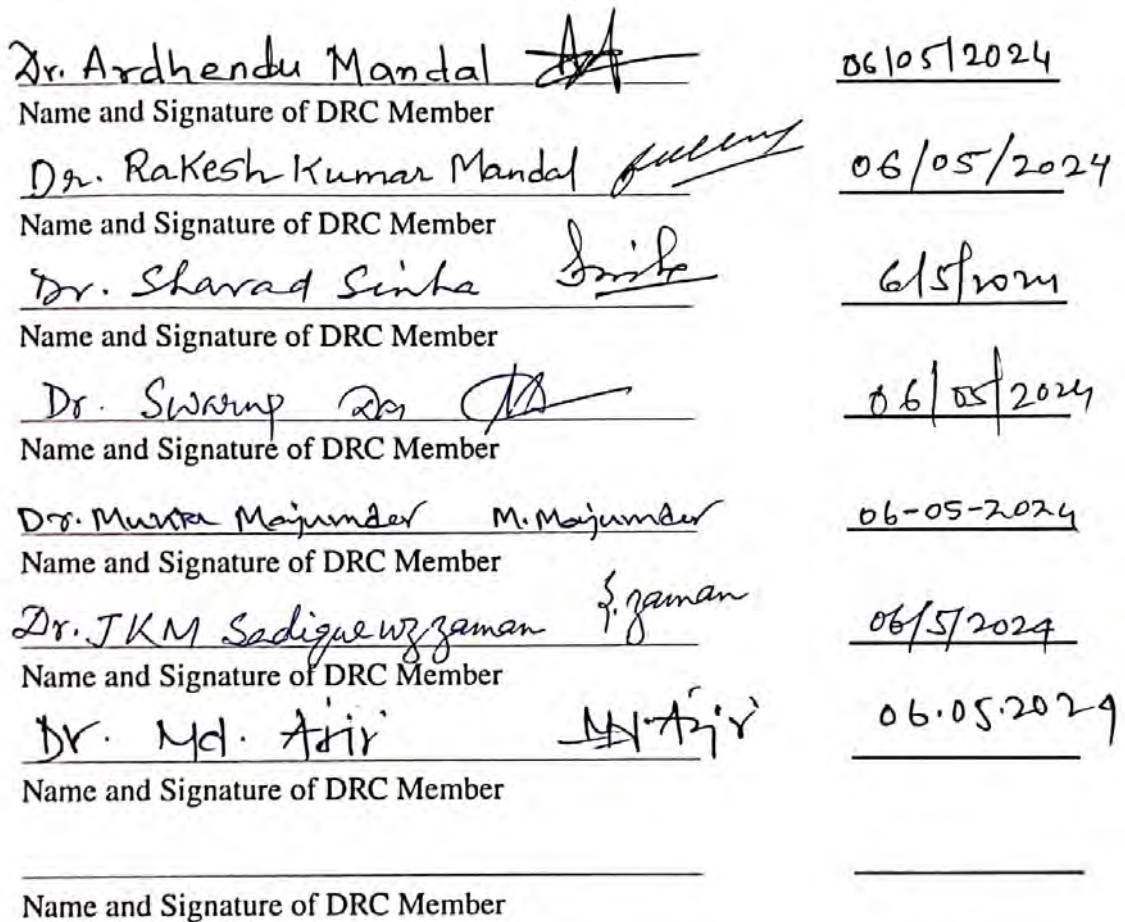 Dr. Ardhendu Mandal 06/05/2024
Name and Signature of DRC Member
Dr. Rakesh Kumar Mandal 06/05/2024
Name and Signature of DRC Member
Dr. Sharad Sinha Sinha 6/5/2024
Name and Signature of DRC Member
Dr. Swarup Das 06/05/2024
Name and Signature of DRC Member
Dr. Mukta Majumder M. Majumder 06-05-2024
Name and Signature of DRC Member
Dr. JKM Sadique uz zaman S. zaman 06/5/2024
Name and Signature of DRC Member
Dr. Md. 06.05.2024
Name and Signature of DRC Member
Name and Signature of DRC Member